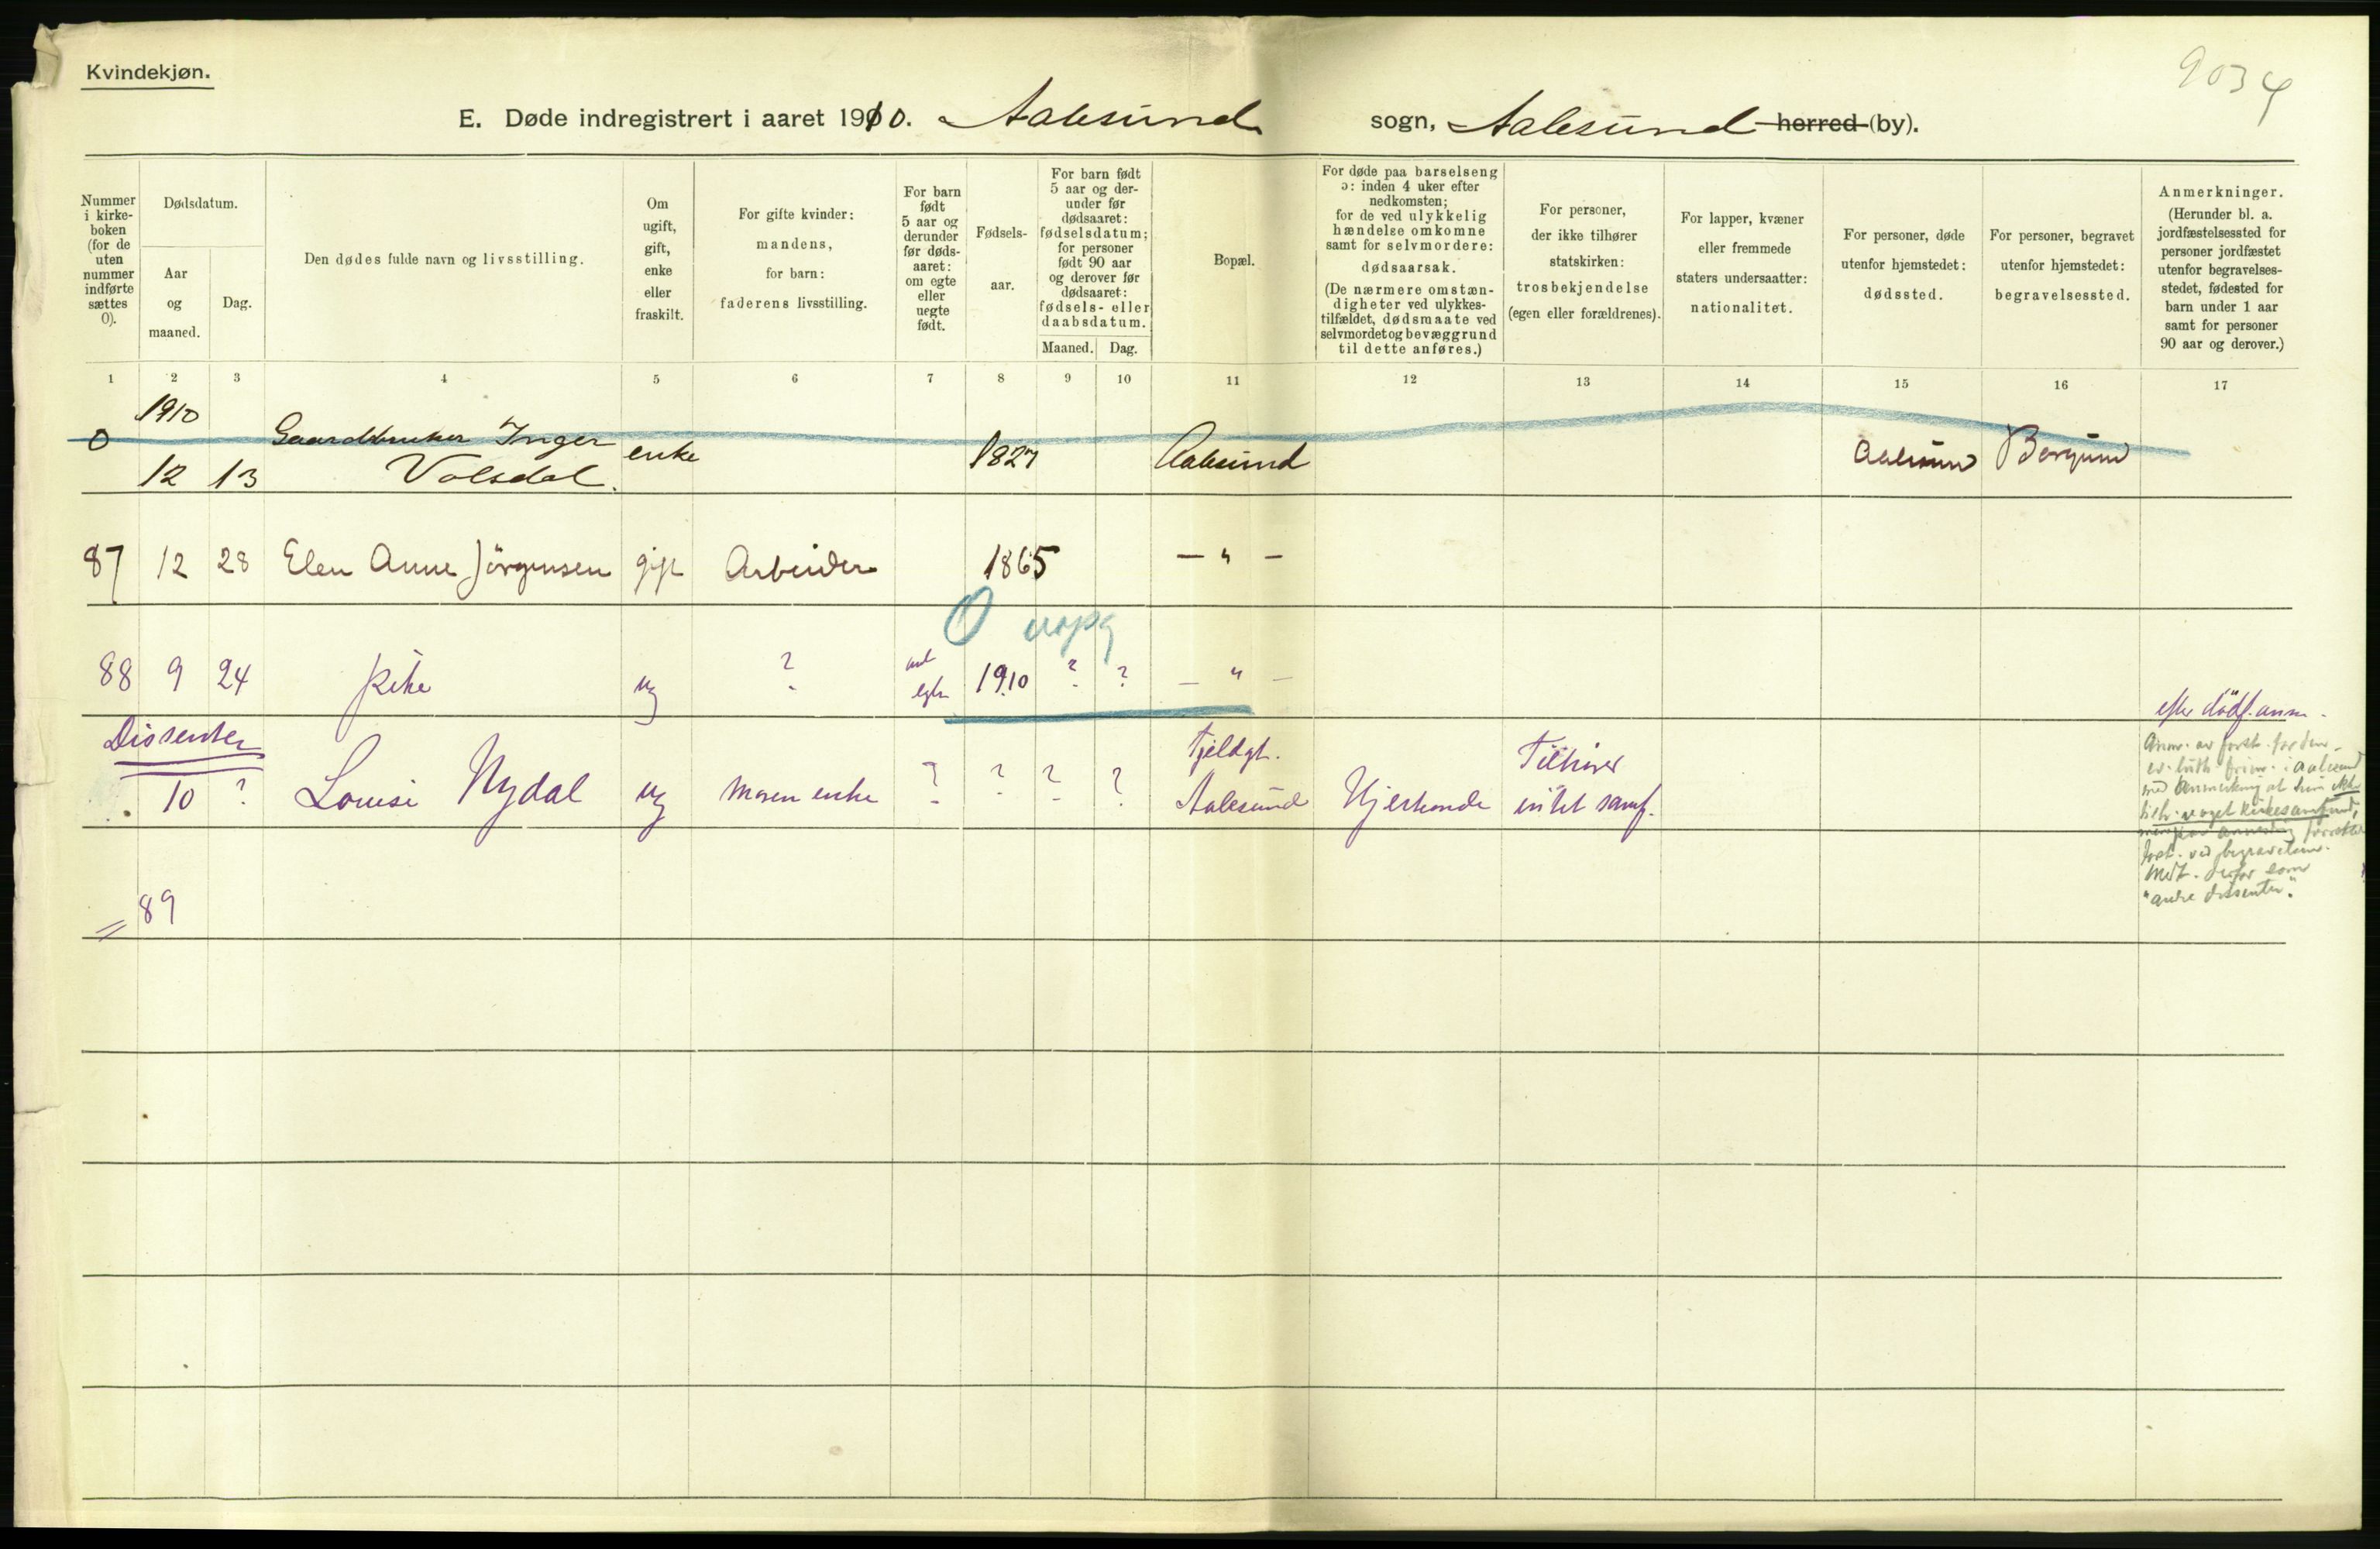 Kvindekjøn.
9034
E. Døde indregistrert i aaret 1910. Aalesund sogn, Aalesund herred (by).
Nummer i kirkeboken (for de uten nummer indførte sættes 0).
Dødsdatum.
Aar og maaned.
Dag.
Den dødes fulde navn og livsstilling.
Om ugift, gift, enke eller fraskilt.
For gifte kvinder: mandens, for barn: faderens livsstilling.
For barn født 5 aar og derunder før dødsaaret: om egte eller uegte født.
Fødselsaar.
For barn født 5 aar og derunder før dødsaaret: fødselsdatum; for personer født 90 aar og derover før dødsaaret: fødsels- eller daabsdatum.
Maaned. Dag.
Bopæl.
For døde paa barselseng ɔ: inden 4 uker efter nedkomsten; for de ved ulykkelig hændelse omkomne samt for selvmordere: dødsaarsak. (De nærmere omstændigheter ved ulykkestilfældet, dødsmaate ved selvmordet og bevæggrund til dette anføres.)
For personer, der ikke tilhører statskirken: trosbekjendelse (egen eller forældrenes).
For lapper, kvæner eller fremmede staters undersaatter: nationalitet.
For personer, døde utenfor hjemstedet: dødssted.
For personer, begravet utenfor hjemstedet: begravelsessted.
Anmerkninger. (Herunder bl. a. jordfæstelsessted for personer jordfæstet utenfor begravelsesstedet, fødested for barn under 1 aar samt for personer 90 aar og derover.)
1 2 3 4 5 6 7 8 9 10 11 12 13 14 15 16 17
1910
0 12 13 Gaardbruker Inger Volsdal. enke 1827 Aalesund Aalesund Borgund
87 12 28 Elen Anne Jörgensen gift Arbeider 1865 - " -
0 uopg
88 9 24 pike ug ? uegte 1910 ? ? - " -
efter dødf. anm.
Dissenter
10 ? Louise Nydal ug Moren enke ? ? ? ? Aalesund Hjertesonde Tilhører intet samf.
"andre dissenter".
= 89